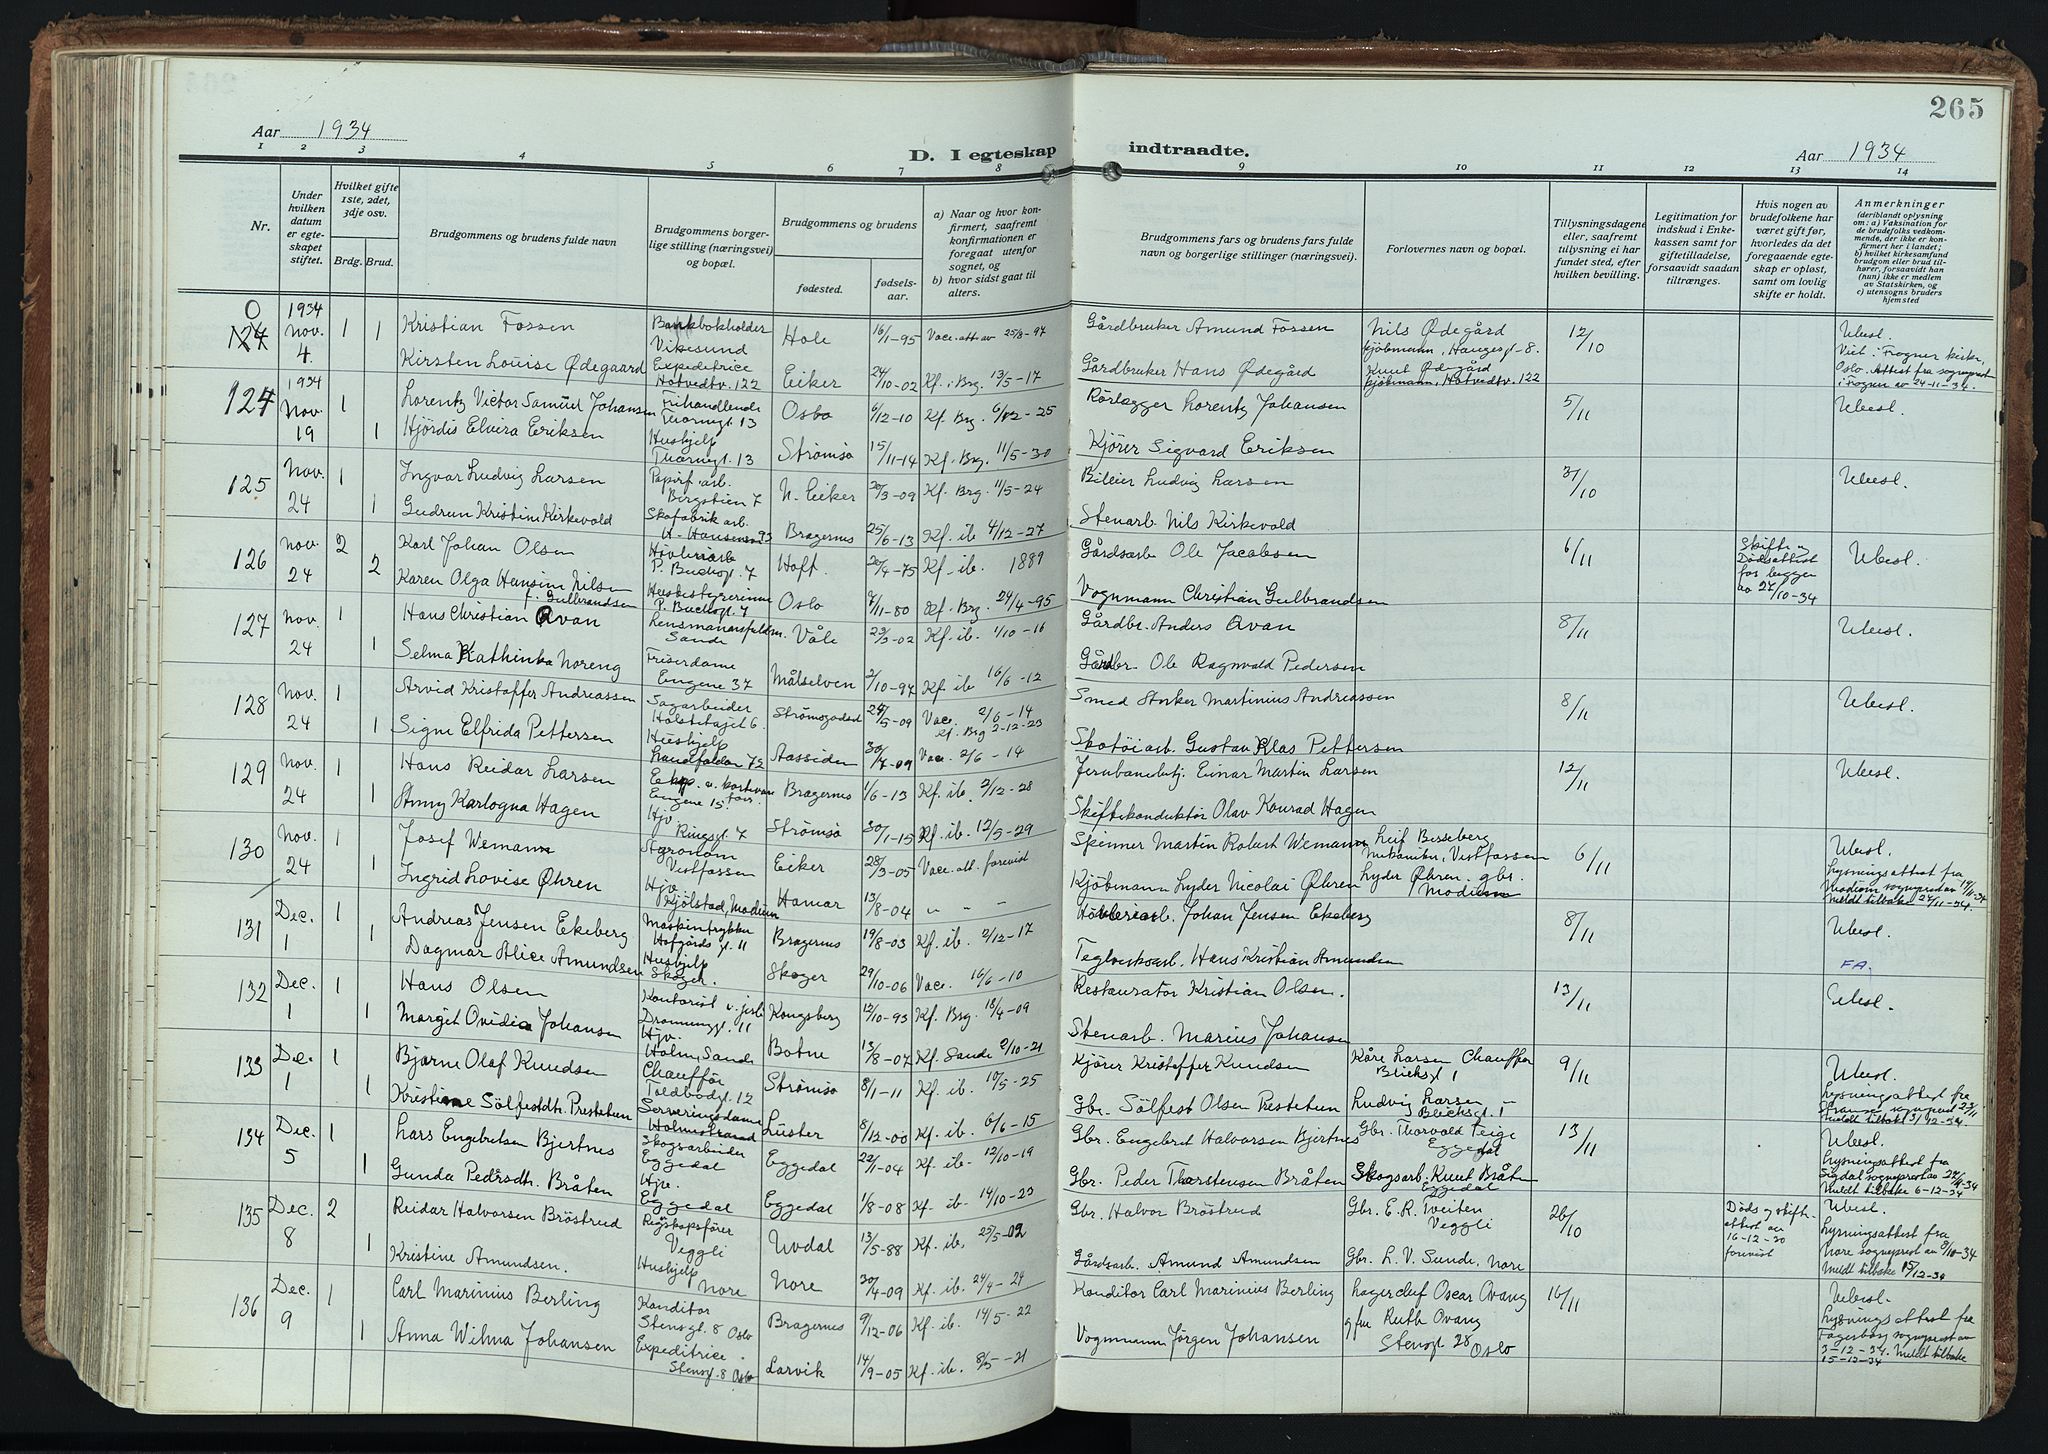 265
Aar 1934
D. I egteskap indtraadte.
Aar 1934
1 2 3 4 5 6 7 8 9 10 11 12 13 14
Nr.
Under hvilken datum er egteskapet stiftet.
Hvilket gifte 1ste, 2det, 3dje osv.
Brdg. Brud.
Brudgommens og brudens fulde navn
Brudgommens borgerlige stilling (næringsvei) og bopæl.
Brudgommens og brudens
fødested.
fødselsaar.
a) Naar og hvor konfirmert, saafremt konfirmationen er foregaat utenfor sognet, og
b) hvor sidst gaat til alters.
Brudgommens fars og brudens fars fulde navn og borgerlige stillinger (næringsvei).
Forlovernes navn og bopæl.
Tillysningsdagene eller, saafremt tillysning ei har fundet sted, efter hvilken bevilling.
Legitimation for indskud i Enkekassen samt for giftetilladelse, forsaavidt saadan tiltrænges.
Hvis nogen av brudefolkene har været gift før, hvorledes da det foregaaende egteskap er opløst, samt om lovlig skifte er holdt.
Anmerkninger
(deriblandt oplysning om: a) Vaksination for de brudefolks vedkommende, der ikke er konfirmert her i landet; b) hvilket kirkesamfund brudgom eller brud tilhører, forsaavidt han (hun) ikke er medlem av Statskirken, og c) utensogns bruders hjemsted
0 1934 Nov. 4 1 Kristian Fossen Bankbokholder Vikesund Hole 16/1-95 Vacc. att. av 25/8-97 Gårdbruker Amund Fossen Nils Ødegård kjøbmann, Haugesgt. 8. 12/10 Ubesl.
1 Kirsten Louise Ødegaard Expeditrice Hotvedtv. 122 Eiker 24/10-02 Kf. i Brg. 13/5-17 Gårdbruker Hans Ødegård Knut Ødegård kjøbmann, Hotvedtv. 122 Viet i Frogner kirke, Oslo. Attest fra sogneprest i Frogner av 24-11-34.
124 1934 Nov. 19 1 Lorentz Victor Samuel Johansen Frihandlende Tuorngt. 13 Oslo 6/12-10 Kf. Brg. 6/12-25 Rørlegger Lorentz Johansen 5/11 Ubesl.
1 Hjördis Elvira Eriksen Hushjelp Tuorngt. 13 Strömsö 15/11-14 Kf. Brg. 11/5-30 Kjörer Sigvard Eriksen
125 Nov. 24 1 Ingvar Ludvig Larsen Papirf. arb. Bergstien 7 N. Eiker 20/3-09 Kf. Brg. 11/5-24 Bileier Ludvig Larsen 31/10 Ubesl.
1 Gudrun Kristine Kirkevold Skofabrik arb. H. Hansensv. 93 Bragernes 25/6-13 Kf. ib 4/12-27 Stenarb. Nils Kirkevold
126 Nov. 24 2 Karl Johan Olsen Høvleriarb. P. Buchsgt. 7 Hoff. 20/4-75 Kf. ib. 1889 Gårdsarb. Ole Jacobsen 6/11 Skifte og Dødsattest for begge av 27/10-34 Ubesl.
2 Karen Olga Hansine Nilsen f. Gulbrandsen Husbestyrerinne P. Buchsgt. 7 Oslo 7/11-80 Kf. Brg. 24/4-95 Vognmann Christian Gulbrandsen
127 Nov. 24 1 Hans Christian Qvan Lensmannsfuldm. Sande Våle 23/3-02 Kf. ib. 1/10-16 Gårdbr. Anders Qvan 8/11 Ubesl.
1 Selma Kathinka Noreng Friserdame Engene 37 Målselven 2/10-97 Kf. ib 16/6-12 Gårdbr. Ole Ragnvald Pedersen
128 Nov. 24 1 Arvid Kristoffer Andreassen Sagarbeider Holstehagt. 6 Strømsgodset 24/5-09 Vac. 2/6-14 Kf. Brg 2-12-23 Smed Storker Martinius Andreassen 8/11 Ubesl.
1 Signe Elfrida Pettersen Hushjelp Landfalløen 72 Aassiden 30/7-09 Vacc. 2/6-14 Skotöiarb. Gustav Klas Pettersen
129 Nov. 24 1 Hans Reidar Larsen Exp. v. kortevare forr. Engene 15 Bragernes 1/6-13 Kf. ib. 2/12-28 Jernbanebetj. Einar Martin Larsen 12/11 Ubesl.
1 Anny Karlogna Hagen Hjv. Ringsgt. 7 Strömsö 30/1-15 Kf. ib. 12/5-29 Skiftekonduktör Olav Konrad Hagen
130 Nov. 24 1 Josef Wemann Agronom Vestfossen Eiker 28/3-05 Vacc. att. forevist Skinner Martin Robert Wemann Leif Berseberg Mekaniker, Vestfossen 6/11 Ubesl.
1 Ingrid Lovise Öhren Hjv. Kjölstad, Modum Hamar 13/8-04 " " " Kjöbmann Lyder Nicolai Öhren Lyder Öhren. gbr. Modum Lysningsattest fra Modum sogneprest av 19/11-34 Meldt tilbake 24/11-34.
131 Dec. 1 1 Andreas Jensen Ekeberg Maskintrykker Hofgårds gt. 11 Bragernes 19/8-03 Kf. ib. 2/12-17 Hövleriarb. Johan Jensen Ekeberg 8/11 Ubesl.
1 Dagmar Alice Amundsen Hushjelp Skoger. Skoger 29/10-06 Vacc. 16/6-10 Teglverksarb. Hans Kristian Amundsen FA.
132 Dec. 1 1 Hans Olsen Kontorist v. jerb. Dronningt. 11 Kongsberg 12/10-93 Kf. Brg. 18/4-09 Restauratør Kristian Olsen. 13/11 Ubesl.
1 Margit Ovidia Johansen Hjv. Holm, Sande Botne 13/8-07 Kf. Sande 2/10-21 Stenarb. Marius Johansen
133 Dec. 1 1 Bjarne Olaf Knudsen Chauffør Toldbodgt. 12 Strömsö 8/1-11 Kf. ib. 10/5-25 Kjörer Kristoffer Knudsen Kåre Larsen Chauffør Blichsgt 1 9/11 Ubesl.
1 Kristiane Sölfestdtr. Prestetun Serveringsdame Holmestrand Luster 8/12-00 Kf. ib. 6/6-15 Gbr. Sölfest Olsen Prestetun Ludvig Larsen Blichsgt. 1 Lysningsattest fra sogneprest 23/11 Meldt tilbake 3/12-34.
134 Dec. 5 1 Lars Engebretsen Bjertnes Skogsarbeider Eggedal Eggedal 22/1-04 Kf. ib. 12/10-19 Gbr. Engebret Halvorsen Bjertnes Gbr. Thorvald Teige Eggedal 13/11 Ubesl.
1 Gunda Pedersdtr. Bråten Hjv. Eggedal Eggedal 1/8-08 Kf. ib. 14/10-23 Gbr. Peder Thorstensen Bråten Skogsarb. Knut Bråten Eggedal Lysningsattest fra Sigdal sogneprest av 27/11-34 Meldt tilbake 6-12-34
135 Dec. 8 2 Reidar Halvorsen Bröstrud Regskapsfører Veggli Uvdal 13/5-88 Kf. ib. 25/5-02 Gbr. Halvor Bröstrud Gbr. E. R. Tveiten Veggli 26/10 Døds og skifteattest av 16-12-30 forevist Ubesl.
1 Kristine Amundsen. Hushjelp Nore Nore 30/4-09 Kf. ib. 24/4-24 Gårdsarb. Amund Amundsen Gbr. L. V. Sunde, Nore Lysningsattest fra Nore sogneprest av 8/10-34 Meldt tilbake 15/12-34
136 Dec. 9 1 Carl Marinius Berling Konditor Stensgt. 8 Oslo Bragernes 9/12-06 Kf. ib. 14/5-22 Konditor Carl Marinius Berling Lagerchef Oscar Qvang 16/11 Ubesl.
1 Anna Wilma Johansen Expeditrice Stensgt. 8 Oslo Larvik 14/9-05 Kf. ib. 8/5-21 Vognmann Jörgen Johansen gfru Ruth Qvang Stensgt 28 Oslo Lysnings attest fra Fagerborg sogneprest av 3-12-34. Meldt tilbake 15-12-34